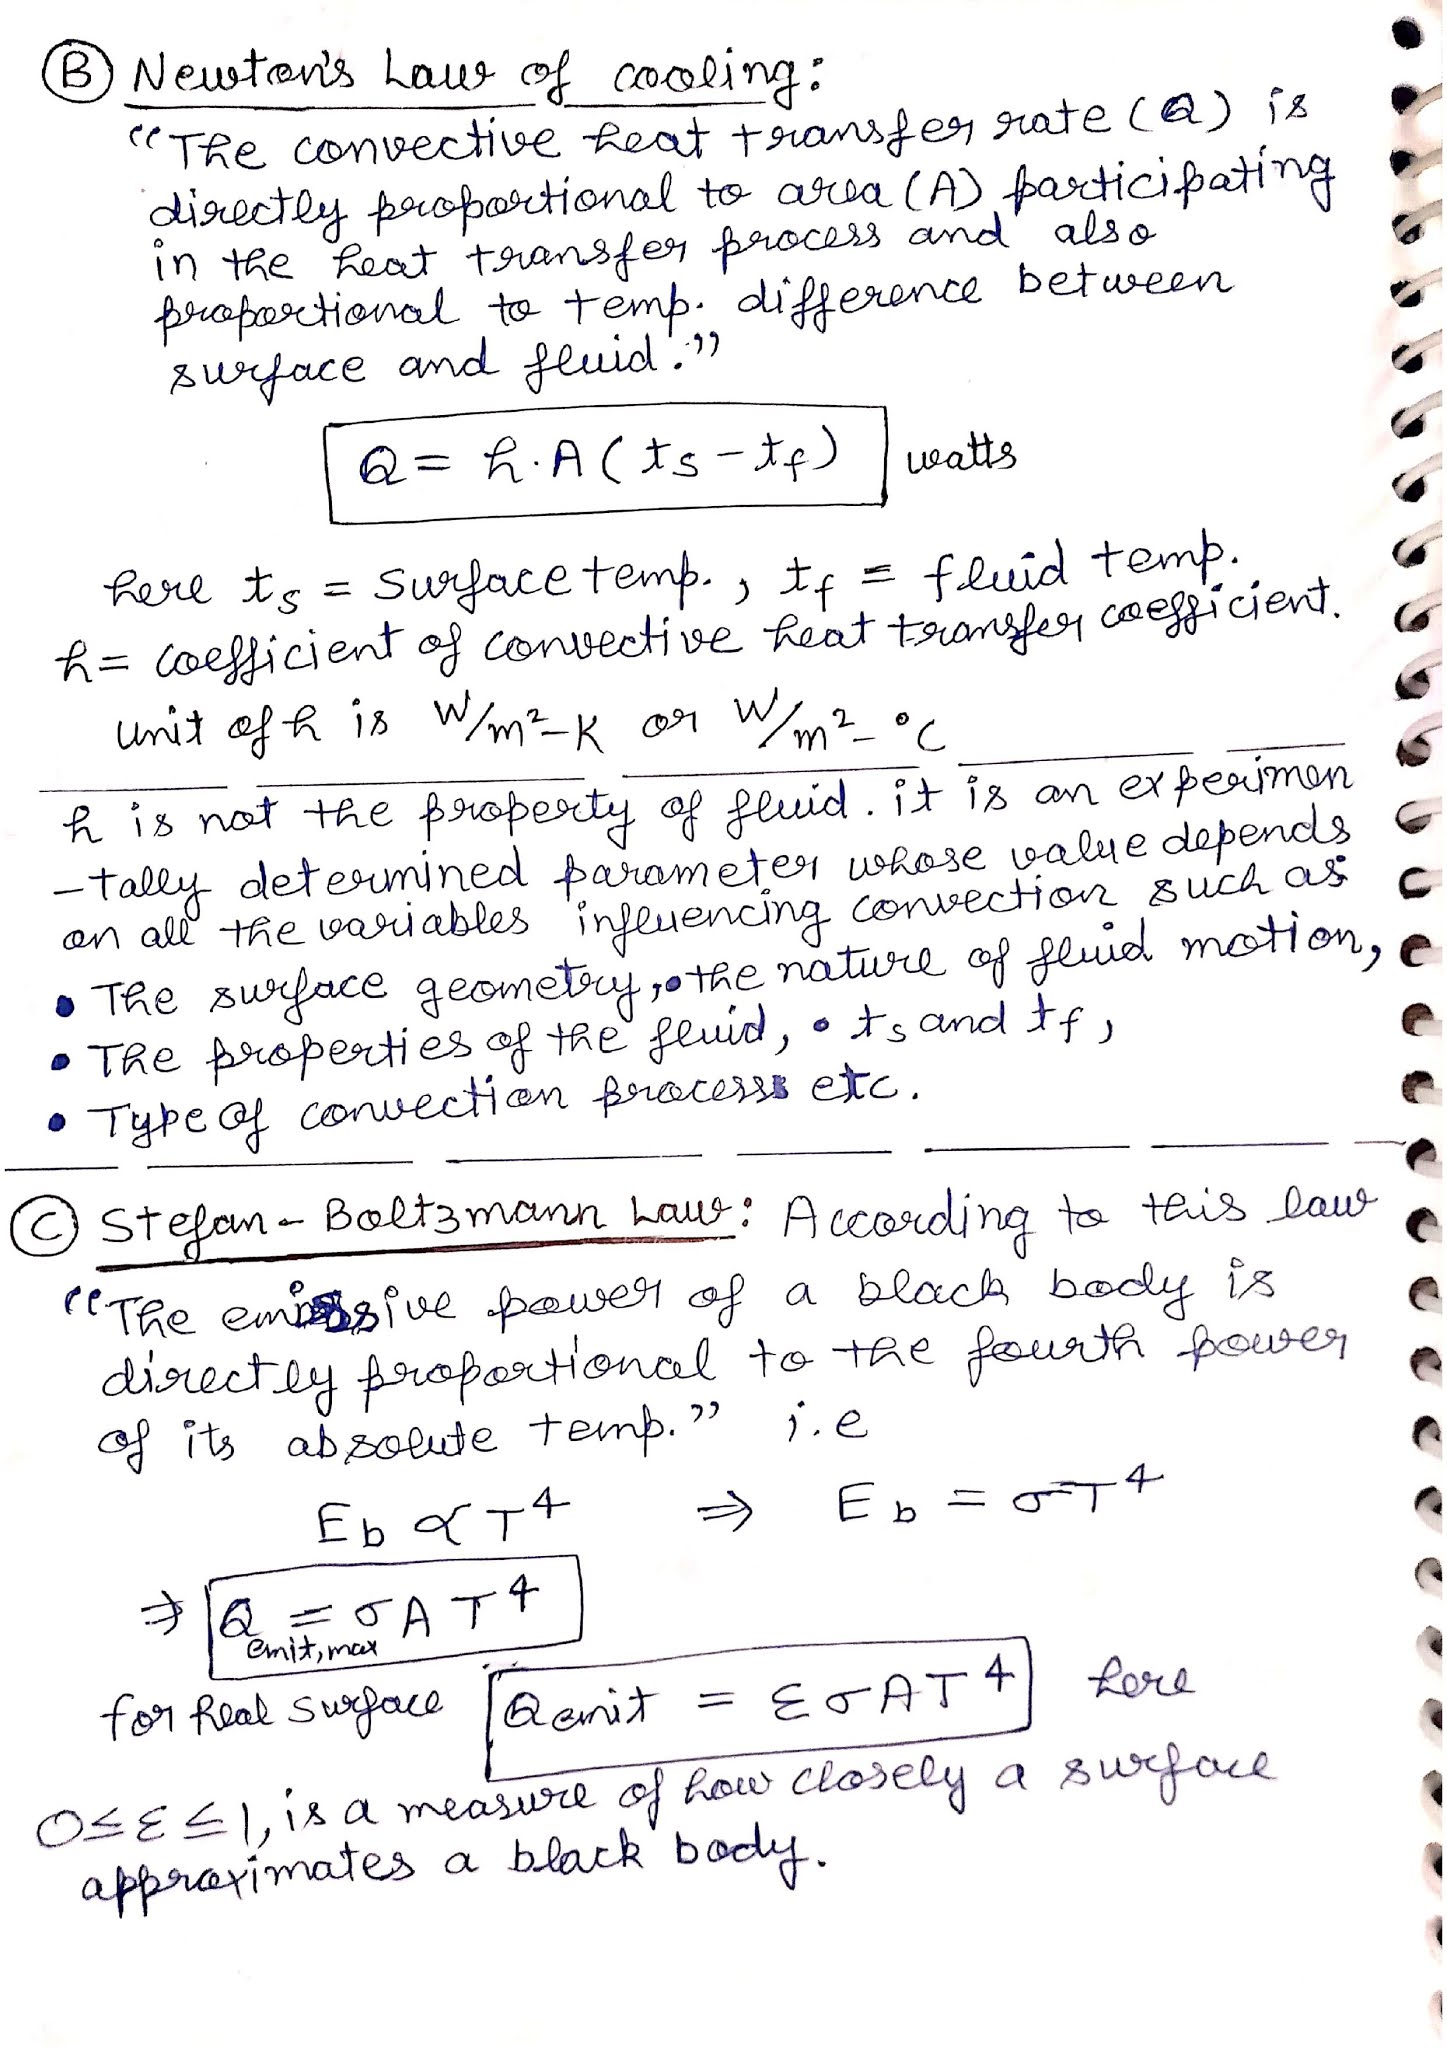 (B) Newton's Law of cooling:
"The convective heat transfer rate (Q) is
directly proportional to area (A) participating
in the heat transfer process and also
proportional to temp. difference between
surface and fluid."
Q = h.A (ts - tf) watts
here ts = Surface temp., tf = fluid temp.
h = coefficient of convective heat transfer coefficient.
unit of h is W/m²-K or W/m²-°C
h is not the property of fluid. it is an experimen
-tally determined parameter whose value depends
on all the variables influencing convection such as
• The surface geometry, • the nature of fluid motion,
• The properties of the fluid, • ts and tf,
• Type of convection process etc.
(C) Stefan-Boltzmann Law: According to this law
"The emissive power of a black body is
directly proportional to the fourth power
of its absolute temp." i.e
Eb ∝ T⁴ ⇒ Eb = σT⁴
⇒ Q emit, max = σAT⁴
for Real surface Qemit = εσAT⁴ here
0≤ε≤1, is a measure of how closely a surface
approximates a black body.